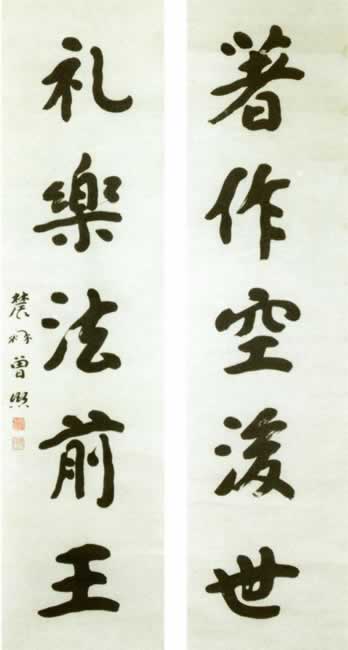 著作空後世
礼樂法前王
辳髯曾熙